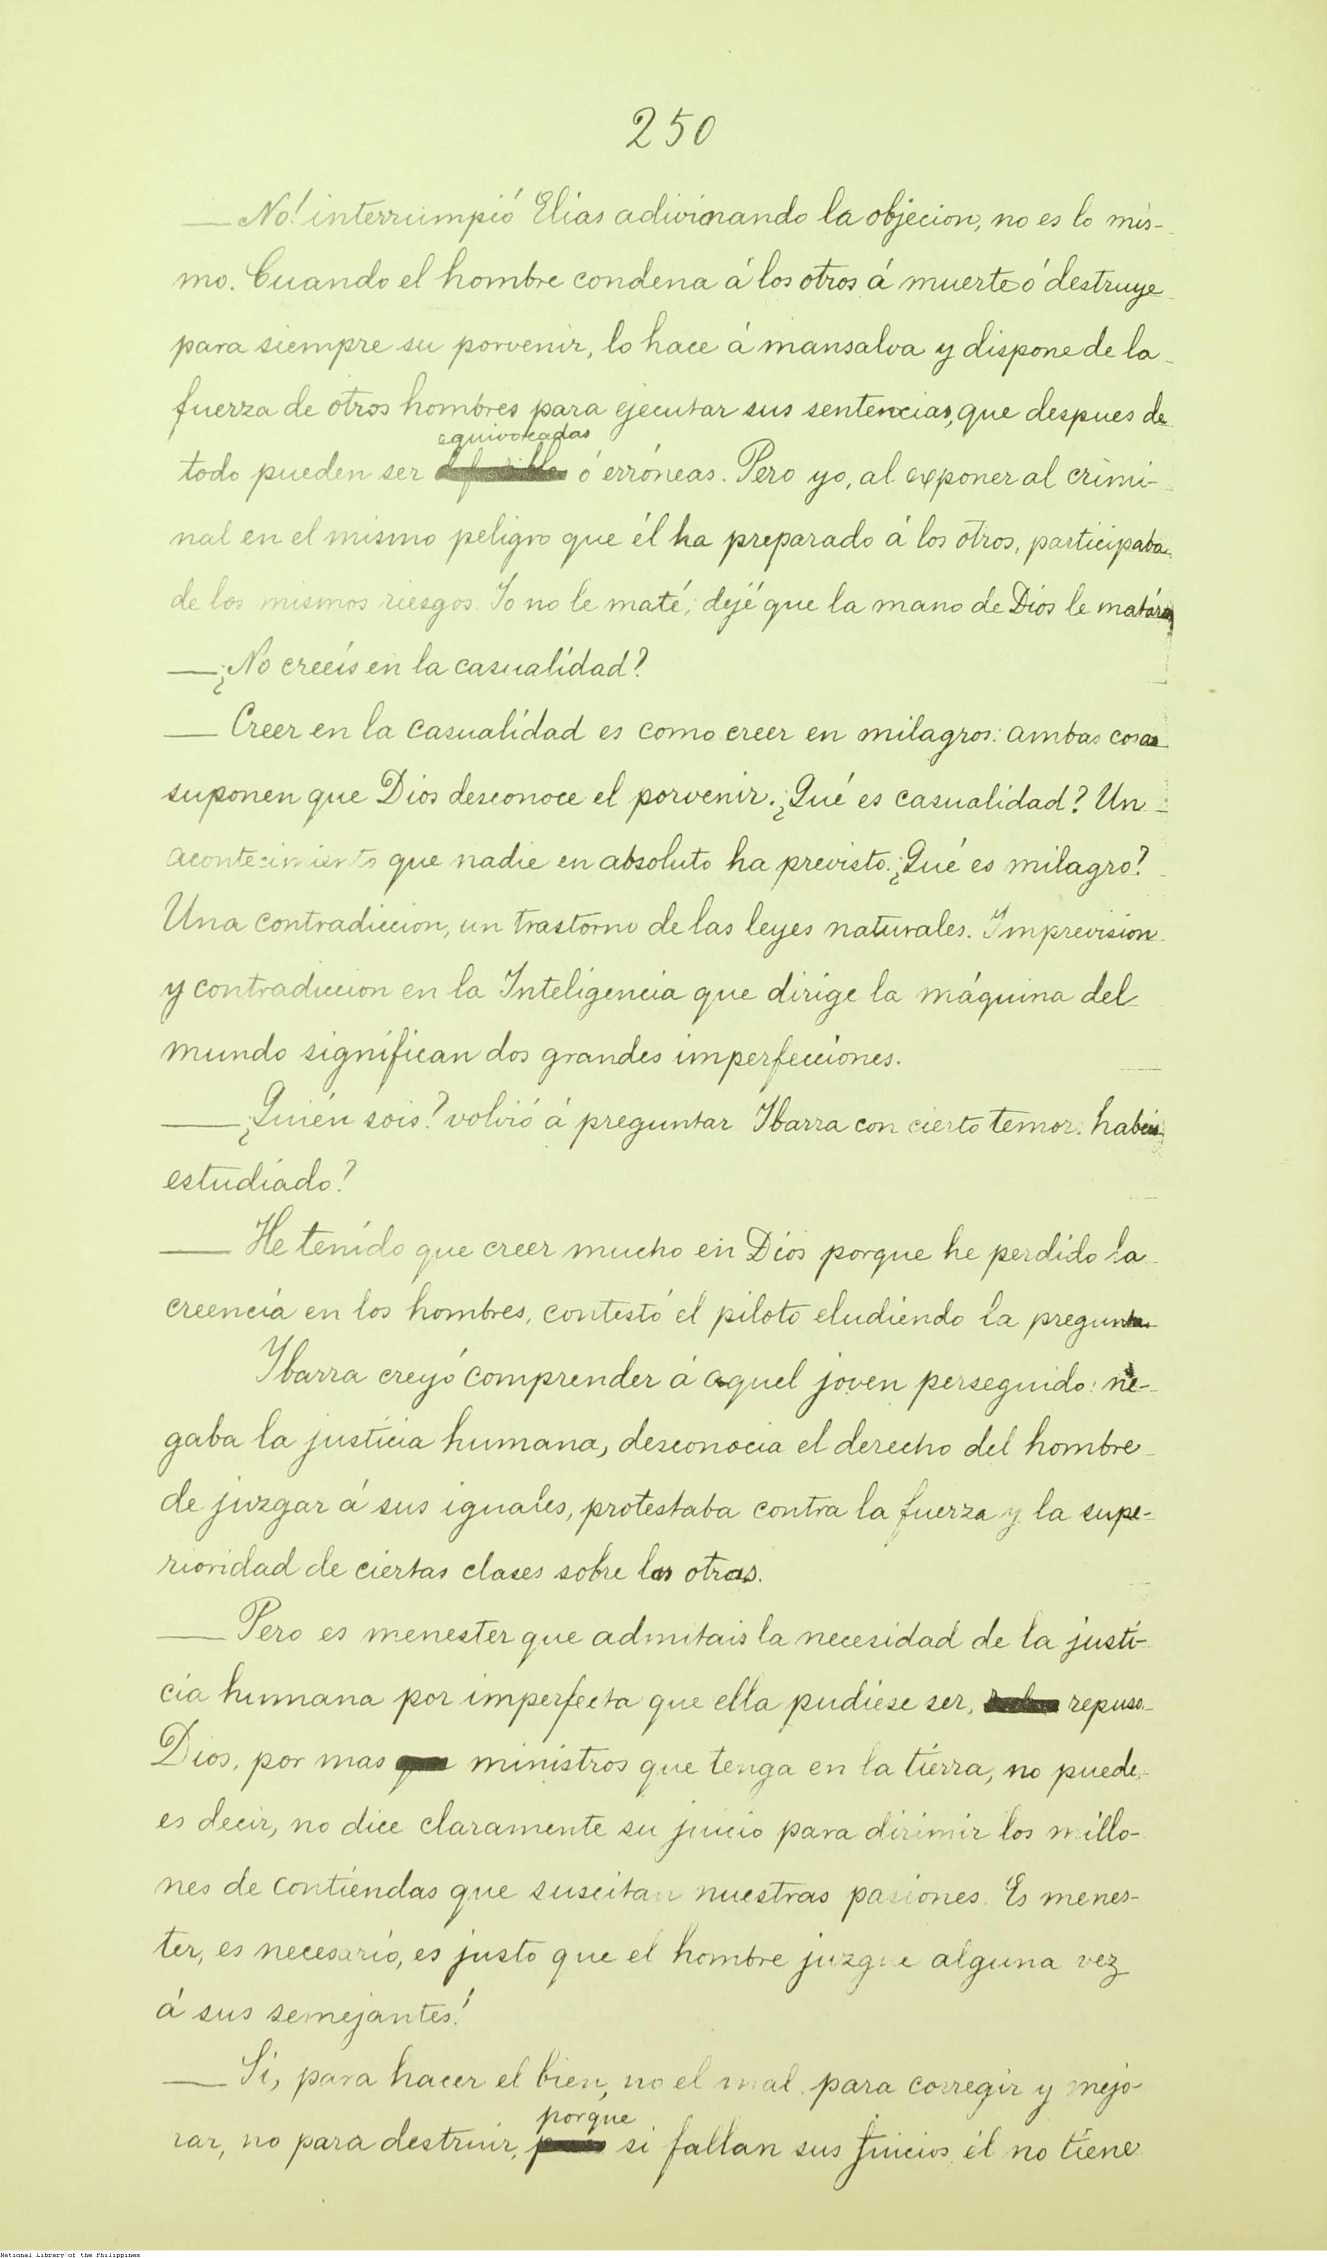 250
— No! interrumpió Elías adivinando la objecion, no es lo mis-
mo. Cuando el hombre condena á los otros á muerte ó destruye
para siempre su porvenir, lo hace á mansalva y dispone de la
fuerza de otros hombres para ejecutar sus sentencias, que despues de
equivocadas
todo pueden ser ó erróneas. Pero yo, al exponer al crimi-
nal en el mismo peligro que él ha preparado á los otros, participaba
de los mismos riesgos. Yo no le maté; dejé que la mano de Dios le matára
— ¿No creeis en la casualidad?
— Creer en la casualidad es como creer en milagros: ambas cosas
suponen que Dios desconoce el porvenir. ¿Qué es casualidad? Un
acontecimiento que nadie en absoluto ha previsto. ¿Qué es milagro?
Una contradiccion, un trastorno de las leyes naturales. Imprevision
y contradiccion en la Inteligencia que dirige la máquina del
mundo significan dos grandes imperfecciones.
— ¿Quién sois? volvió á preguntar Ibarra con cierto temor: habeis
estudiado?
— He tenido que creer mucho en Dios porque he perdido la
creencia en los hombres, contestó el piloto eludiendo la pregunta
Ibarra creyó comprender á aquel joven perseguido: ne-
gaba la justicia humana, desconocia el derecho del hombre
de juzgar á sus iguales, protestaba contra la fuerza y la supe-
rioridad de ciertas clases sobre las otras.
— Pero es menester que admitais la necesidad de la justi-
cia humana por imperfecta que ella pudiese ser, repuso.
Dios, por mas ministros que tenga en la tierra, no puede,
es decir, no dice claramente su juicio para dirimir los millo-
nes de contiendas que suscitan nuestras pasiones. Es menes-
ter, es necesario, es justo que el hombre juzgue alguna vez
á sus semejantes!
— Si, para hacer el bien, no el mal, para corregir y mejo-
porque
rar, no para destruir, si fallan sus juicios él no tiene
National Library of the Philippines